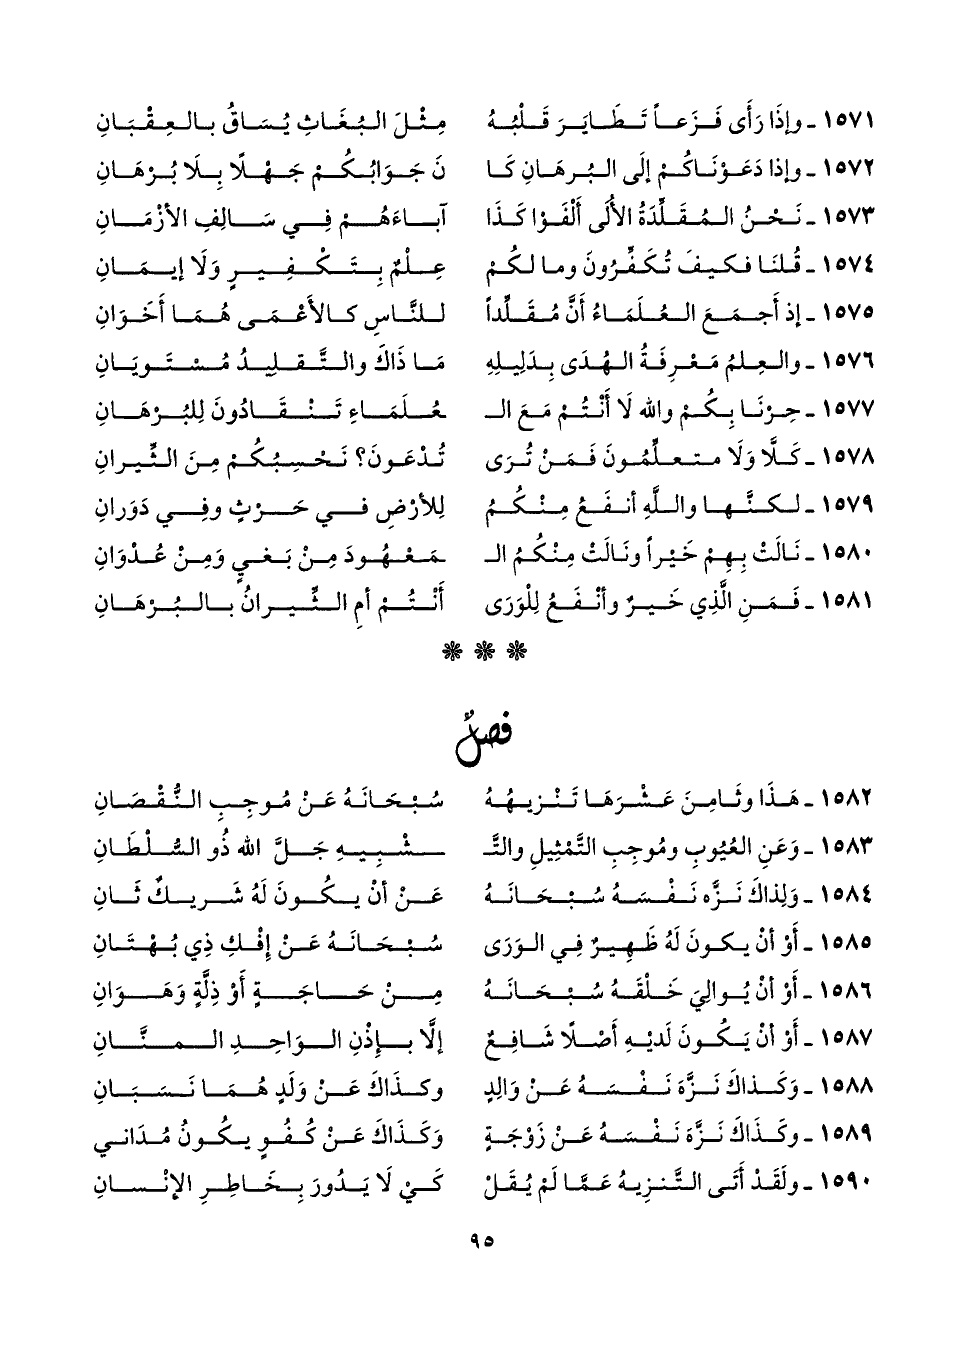 ١٥٧١ - وإذَا رَأى فَزِعاً تَطَايَرَ قَلْبُهُ مِثْلَ البُغَاثِ يُسَاقُ بالعِقْبَانِ
١٥٧٢ - وإذا دَعَوْنَاكُمْ إلَى البُرهَانِ كَا نَ جَوَابُكُمْ جَهْلًا بِلَا بُرْهَانِ
١٥٧٣ - نَحْنُ المُقَلِّدَةُ الأُلَى أَلْفَوْا كَذَا آبَاءَهُمْ فِي سَالِفِ الأزْمَانِ
١٥٧٤ - قُلنَا فكيفَ تُكَفِّرُونَ وما لكُم عِلْمٌ بِتَكْفِيرٍ وَلَا إيمَانِ
١٥٧٥ - إذ أجمَعَ العُلَمَاءُ أنَّ مُقَلِّداً للنَّاسِ كالأَعْمَى هُمَا أَخَوَانِ
١٥٧٦ - والعِلمُ مَعْرِفَةُ الهُدَى بِدَلِيلِهِ مَا ذَاكَ والتَّقلِيدُ مُسْتَوِيَانِ
١٥٧٧ - حِرْنَا بِكُمْ والله لَا أنْتُمْ مَعَ الـ ـعُلَمَاءِ تَنْقَادُونَ لِلبُرْهَانِ
١٥٧٨ - كَلَّا وَلَا متعلِّمُونَ فَمَنْ تُرَى تُدْعَونَ؟ نَحْسِبُكُمْ مِنَ الثِّيرانِ
١٥٧٩ - لكنَّها واللَّهِ أنفَعُ مِنْكُمُ لِلأرْضِ في حَرْثٍ وفِي دَوَرَانِ
١٥٨٠ - نَالَتْ بِهِمْ خَيْراً ونَالَتْ مِنْكُمُ الـ ـمَعْهُودَ مِنْ بَغْيٍ وَمِنْ عُدْوَانِ
١٥٨١ - فَمَنِ الَّذِي خَيرٌ وأنْفَعُ لِلْوَرَى أَنْتُمْ أمِ الثِّيرانُ بالبُرْهَانِ
❋ ❋ ❋
فصلٌ
١٥٨٢ - هَذَا وثَامِنَ عَشْرَهَا تَنْزِيهُهُ سُبْحَانَهُ عَنْ مُوجِبِ النُّقْصَانِ
١٥٨٣ - وَعَنِ العُيُوبِ ومُوجِبِ التَّمْثِيلِ والتَّـ ـشْبِيهِ جَلَّ الله ذُو السُّلْطَانِ
١٥٨٤ - وَلِذاكَ نَزَّه نَفْسَهُ سُبْحَانَهُ عَنْ أنْ يكُونَ لَهُ شَرِيكٌ ثَانِ
١٥٨٥ - أَوْ أنْ يكونَ لَهُ ظَهِيرٌ فِي الوَرَى سُبْحَانَهُ عَنْ إفْكِ ذِي بُهْتَانِ
١٥٨٦ - أَوْ أنْ يُوالِيَ خَلْقَهُ سُبْحَانَهُ مِنْ حَاجَةٍ أَوْ ذِلَّةٍ وَهَوَانِ
١٥٨٧ - أَوْ أنْ يَكُونَ لَديْهِ أصْلًا شَافِعٌ إلَّا بإذْنِ الوَاحِدِ المنَّانِ
١٥٨٨ - وَكَذاكَ نَزَّهَ نَفْسَهُ عَنْ وَالِدٍ وكذَاكَ عَنْ وَلَدٍ هُمَا نَسَبَانِ
١٥٨٩ - وكَذَاكَ نَزَّهَ نَفْسَهُ عَنْ زَوْجَةٍ وَكَذَاكَ عَنْ كُفُوٍ يكُونُ مُدَانِي
١٥٩٠ - ولَقَدْ أَتَى التَّنزِيهُ عَمَّا لَمْ يُقَلْ كَيْ لَا يَدُورَ بِخَاطِرِ الإنْسَانِ
٩٥